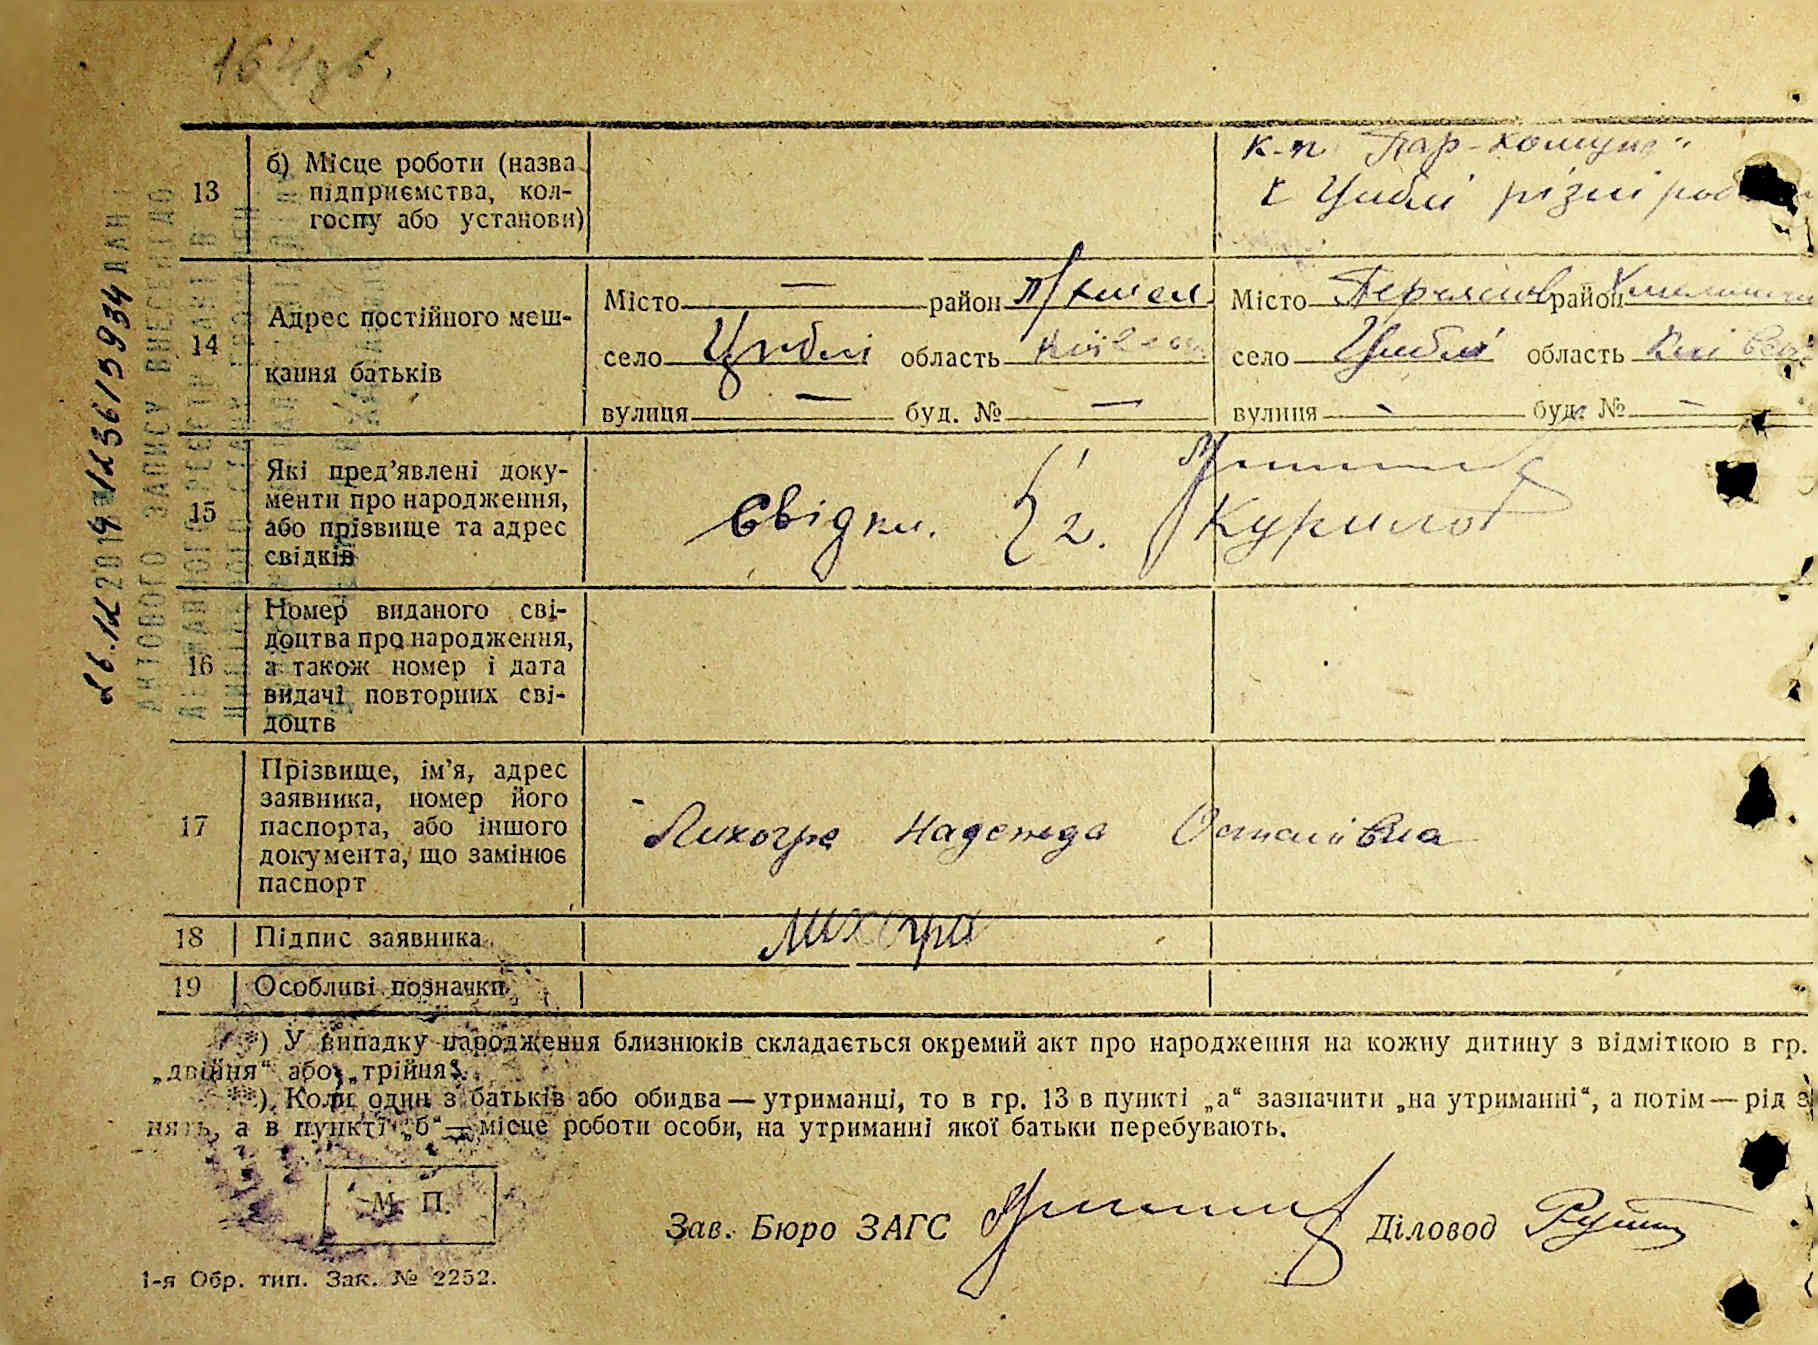 13
б) Місце роботи (назва
підприємства, кол-
госпу або установи)
к-п "Пар-комуна"
Циблі різні роб
14
Адрес постійного меш-
кання батьків
Місто — район П/Хмел.
село Циблі область Київськ.
вулиця — буд. № —
Місто Переяслов район Хмельницьк
село Циблі область Київськ
вулиця - буд. № -
15
Які пред'явлені доку-
менти про народження,
або прізвище та адрес
свідків
Свідки. 1
2. Курило
16
Номер виданого сві-
доцтва про народження,
а також номер і дата
видачі повторних сві-
доцтв
17
Прізвище, ім'я, адрес
заявника, номер його
паспорта, або іншого
документа, що замінює
паспорт
Лихогра Надежда Остапівна
18 Підпис заявника
Лихогра
19 Особливі позначки
*) У випадку народження близнюків складається окремий акт про народження на кожну дитину з відміткою в гр.
„двійня“ або „трійня“.
**) Коли один з батьків або обидва — утриманці, то в гр. 13 в пункті „а“ зазначити „на утриманні“, а потім — рід за
нять, а в пункті „б“ — місце роботи особи, на утриманні якої батьки перебувають.
М. П.
Зав. Бюро ЗАГС
Діловод
1-я Обр. тип. Зак. № 2252.
АКТОВОГО ЗАПИСУ ВНЕСЕНІ ДО